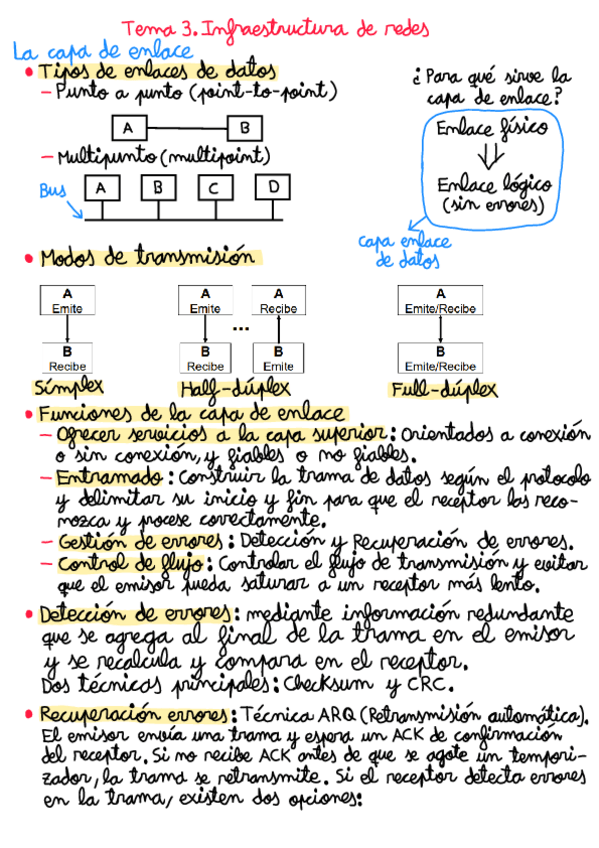 Tema 3. Infraestructura de redes
La capa de enlace
• Tipos de enlaces de datos
– Punto a punto (point-to-point)
A B
– Multipunto (multipoint)
Bus
A B C D
¿Para qué sirve la
capa de enlace?
Enlace físico
Enlace lógico
(sin errores)
capa enlace
de datos
• Modos de transmisión
A
Emite
B
Recibe
Símplex
A
Emite
B
Recibe
...
A
Recibe
B
Emite
Half-dúplex
A
Emite/Recibe
B
Emite/Recibe
Full-dúplex
• Funciones de la capa de enlace
– Ofrecer servicios a la capa superior: Orientados a conexión
o sin conexión, y fiables o no fiables.
– Entramado: Construir la trama de datos según el protocolo
y delimitar su inicio y fin para que el receptor las reco-
nozca y procese correctamente.
– Gestión de errores: Detección y Recuperación de errores.
– Control de flujo: Controlar el flujo de transmisión y evitar
que el emisor pueda saturar a un receptor más lento.
• Detección de errores: mediante información redundante
que se agrega al final de la trama en el emisor
y se recalcula y compara en el receptor.
Dos técnicas principales: Checksum y CRC.
• Recuperación errores: Técnica ARQ (Retransmisión automática).
El emisor envía una trama y espera un ACK de confirmación
del receptor. Si no recibe ACK antes de que se agote un tempori-
zador, la trama se retransmite. Si el receptor detecta errores
en la trama, existen dos opciones: